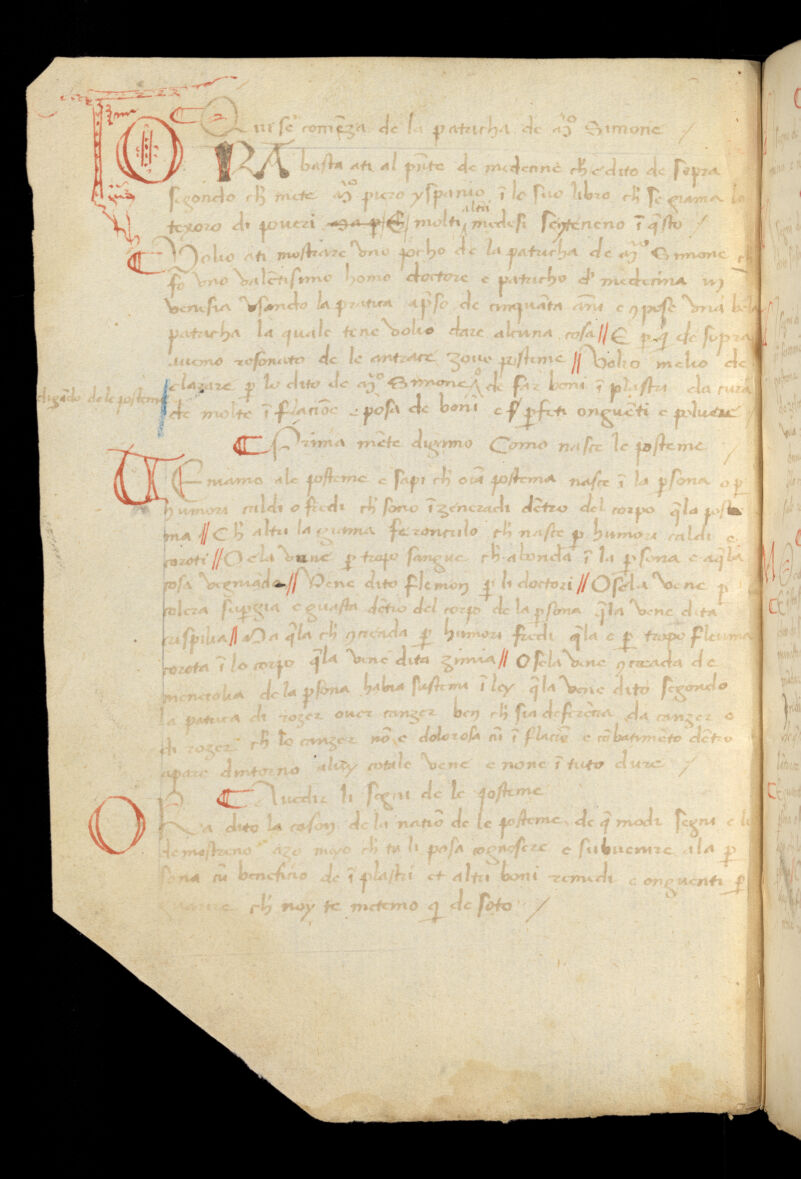 Qui se comēza de la patricha de mº Simone /
ORA basta ati al pñte de medecine ch̄ e dito de sopra
segondo ch̄ mete mº piero yspanio ī lo suo libro ch̄ se giama lo
texoro di poveri molti altri medesi se ī q̄sto /
Volio ati mostrare uno pocho de la patricha de mº Simone ch̄
fo uno valētisimo homo doctore e patricho de medecina in
venesia usando la pratica apṡo de cinquāta āni e ꝯpose una bela
patricha la quale tene volio dare alcuna cosa // E de supra
avemo rosonato de le antrace zove postime // Volio melio de
clarare ꝑ lo dito de mº Simone de far boni ī plastri da curar
digādo de le posteme
de molte ī flaciōe e posa de boni e ꝑfeti onguēti e polvere
Prima mēte digamo Como nasce le posteme /
VEniamo ale posteme e sapi ch̄ onī postema nasce ī la ꝑsona o ꝑ
humori caldi o fredi ch̄ sono īzeneradi dētro del corpo q̄la poste
ma // Ch̄ altri la giama feronculo ch̄ nasce ꝑ humori caldi e
coroti // O ela vene ꝑ tropo sangue ch̄ abonda ī la ꝑsona e aq̄la
cosa vegniada // Vene dito flemon ꝑ li doctori // O sela vene ꝑ
colera supgia e guasta dētro del corpo de la ꝑsona q̄la vene dita
crispilia // Ma q̄la ch̄ ꝯcreada ꝑ humori fredi q̄la e ꝑ tropo fleuma
corota ī lo corpo q̄la vene dita zimia // O sela vene ꝯcreada de
menerolia de la ꝑsona habia sustena ī ley q̄la vene dito segondo
la patrica di rozer over canzer ben ch̄ sia deferēcia da canzer o
di rozer ch̄ lo canzer nō e dolorosa cū ī flaciōe e cōbatimēto dētro
apare dintorno cotale vene e none ī tuto dure /
A vedir li segni de le posteme
ORa dito la cason de la natiō de le posteme de q̄ modi segni e li
demostreno azo meyo ch̄ tu li posa cognosere e subvenire ala ꝑ
sona cū beneficio de ī plastri et altri boni remedi e onguenti ꝑ
ch̄ noy te metemo q̄ de soto /